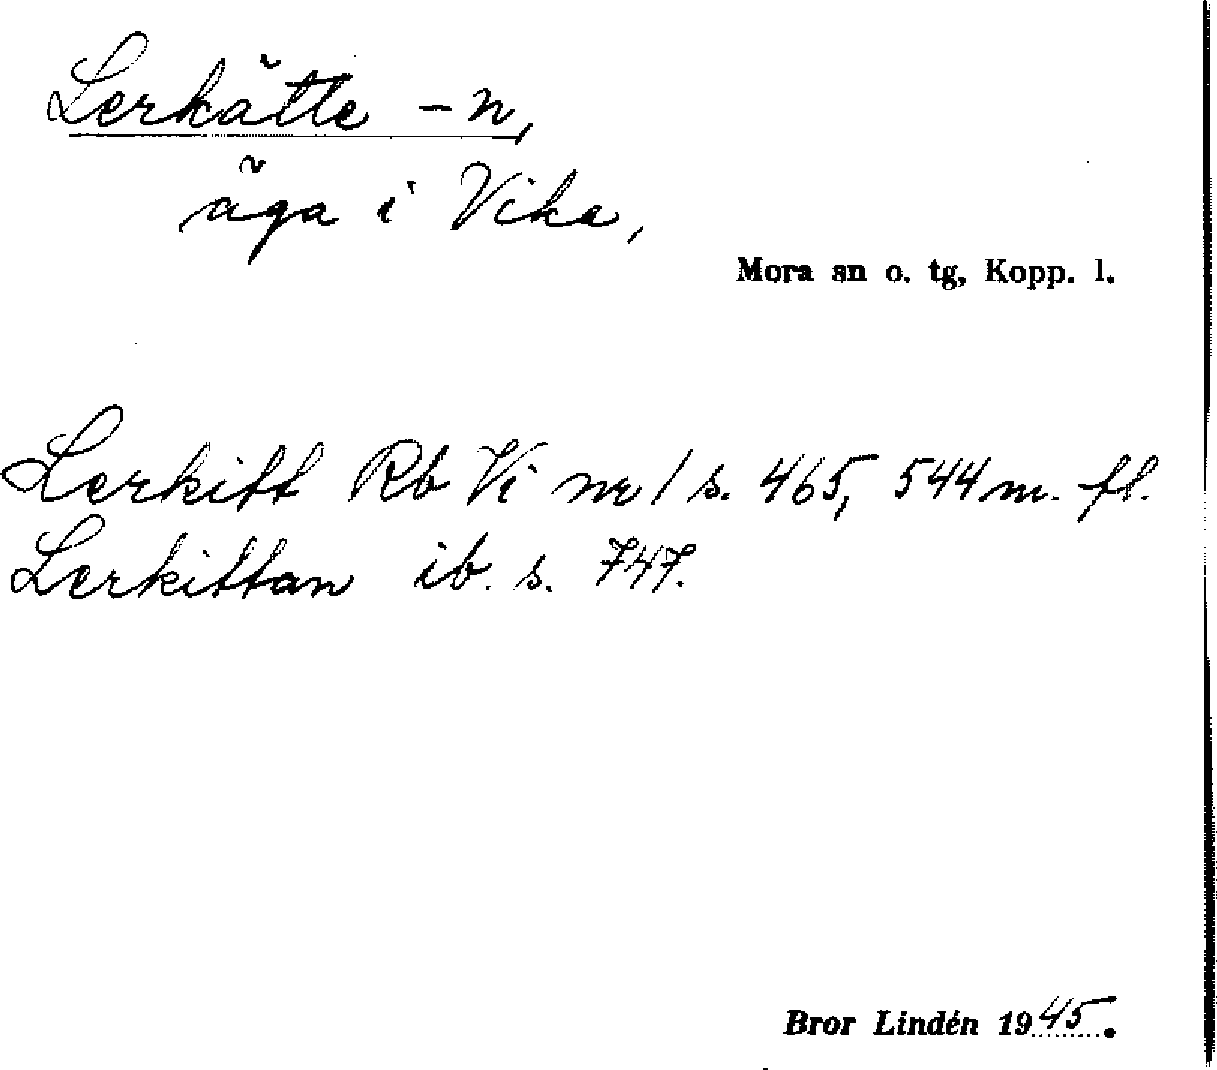 Lerkätte -n,
äga i Vika,
Mora sn o. tg, Kopp. l.
Lerkitt Rb Vi nr 1 s. 465, 544 m. fl.
Lerkittan ib. s. 747.
Bror Lindén 1945.